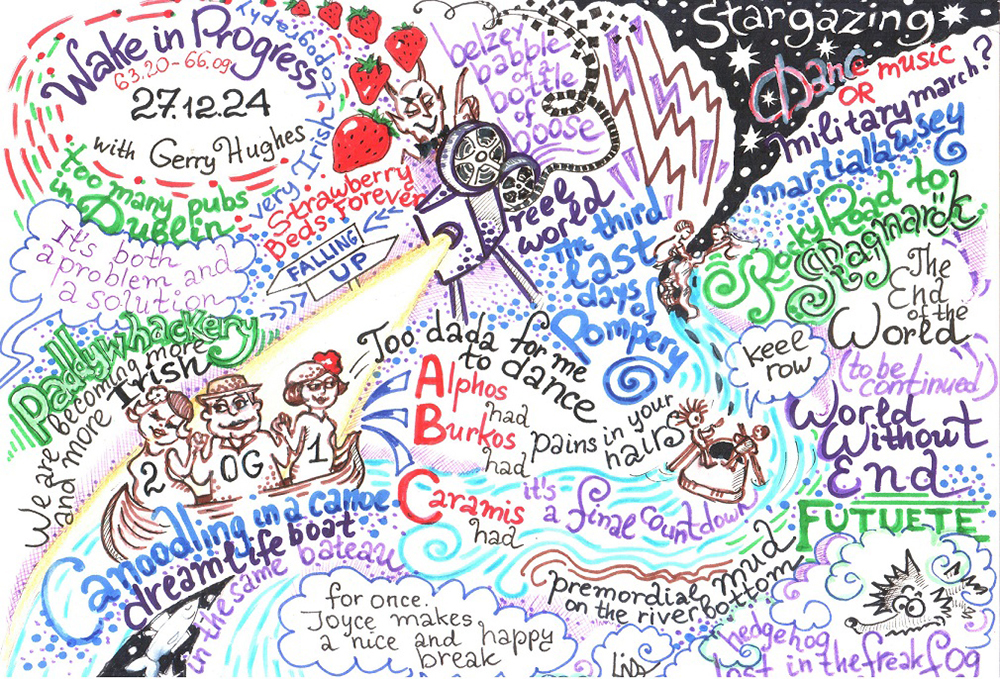 Wake in Progress
63.20-66.09
27.12.24
with Gerry Hughes
very Irish topography
too many pubs
in Dublin
Strawberry
Beds Forever
FALLING
UP
It's both
a problem and
a solution
Paddywhackery
We are becoming more
and more Irish
2
OG
1
Canoodling in a canoe
dreamlife boat
in the same bateau
belzey
babble
of a
bottle
of
boose
reel
world
The third
last
days of
Pompery
Too dada for me
to dance
Alphos
had
Burkos
had
Caramis
had
pains in your
hairs
it's
a final countdown
for once.
Joyce makes
a nice and happy
break
premordial mud
on the river bottom
Stargazing
Dance music
OR
military march?
martiallawsey
Rocky Road to
The
End
of the
World
(to be
continued)
World
Without
End
FUTUETE
keee
row
hedgehog
lost in the freak fog